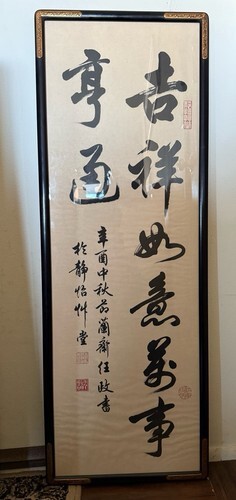 吉祥如意萬事
亨通
辛酉中秋前蘭齋任政書
於靜怡艸堂